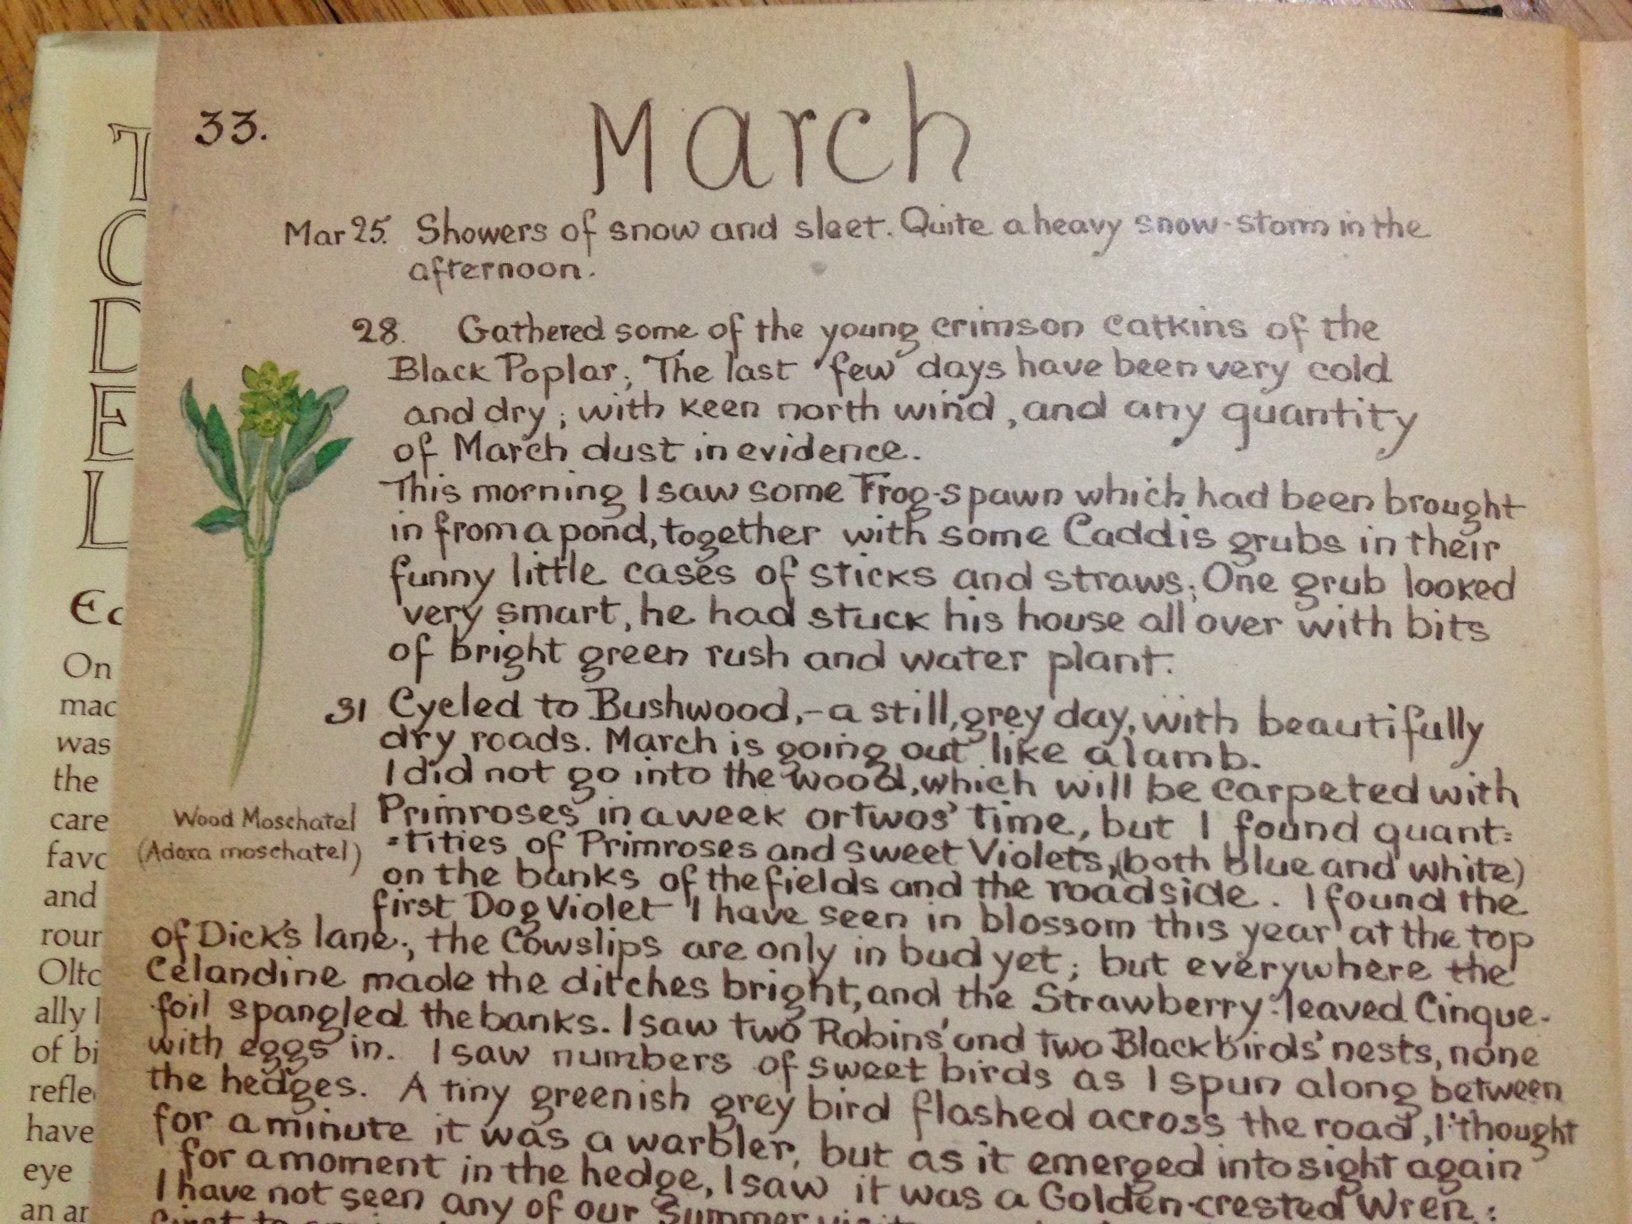 33.
March
Mar 25. Showers of snow and sleet. Quite a heavy snow-storm in the
afternoon.
28. Gathered some of the young crimson catkins of the
Black Poplar; The last few days have been very cold
and dry; with keen north wind, and any quantity
of March dust in evidence.
This morning I saw some Frog-spawn which had been brought
in from a pond, together with some Caddis grubs in their
funny little cases of sticks and straws; One grub looked
very smart, he had stuck his house all over with bits
of bright green rush and water plant.
31 Cycled to Bushwood,- a still, grey day, with beautifully
dry roads. March is going out like a lamb.
I did not go into the wood, which will be carpeted with
Primroses in a week or twos' time, but I found quant:
:tities of Primroses and sweet Violets, (both blue and white)
on the banks of the fields and the roadside. I found the
first Dog Violet I have seen in blossom this year at the top
of Dick's lane; the Cowslips are only in bud yet; but everywhere the
Celandine made the ditches bright, and the Strawberry-leaved Cinque-
foil spangled the banks. I saw two Robins' and two Blackbirds' nests, none
with eggs in. I saw numbers of sweet birds as I spun along between
the hedges. A tiny greenish grey bird flashed across the road, I thought
for a minute it was a warbler, but as it emerged into sight again
for a moment in the hedge, I saw it was a Golden-crested Wren;
I have not seen any of our Summer
first to
Wood Moschatel
(Adoxa moschatel)
T
O
D
E
L
On
mac
was
the
care
favo
and
roun
Olto
ally
of bi
refle
have
eye
an ar